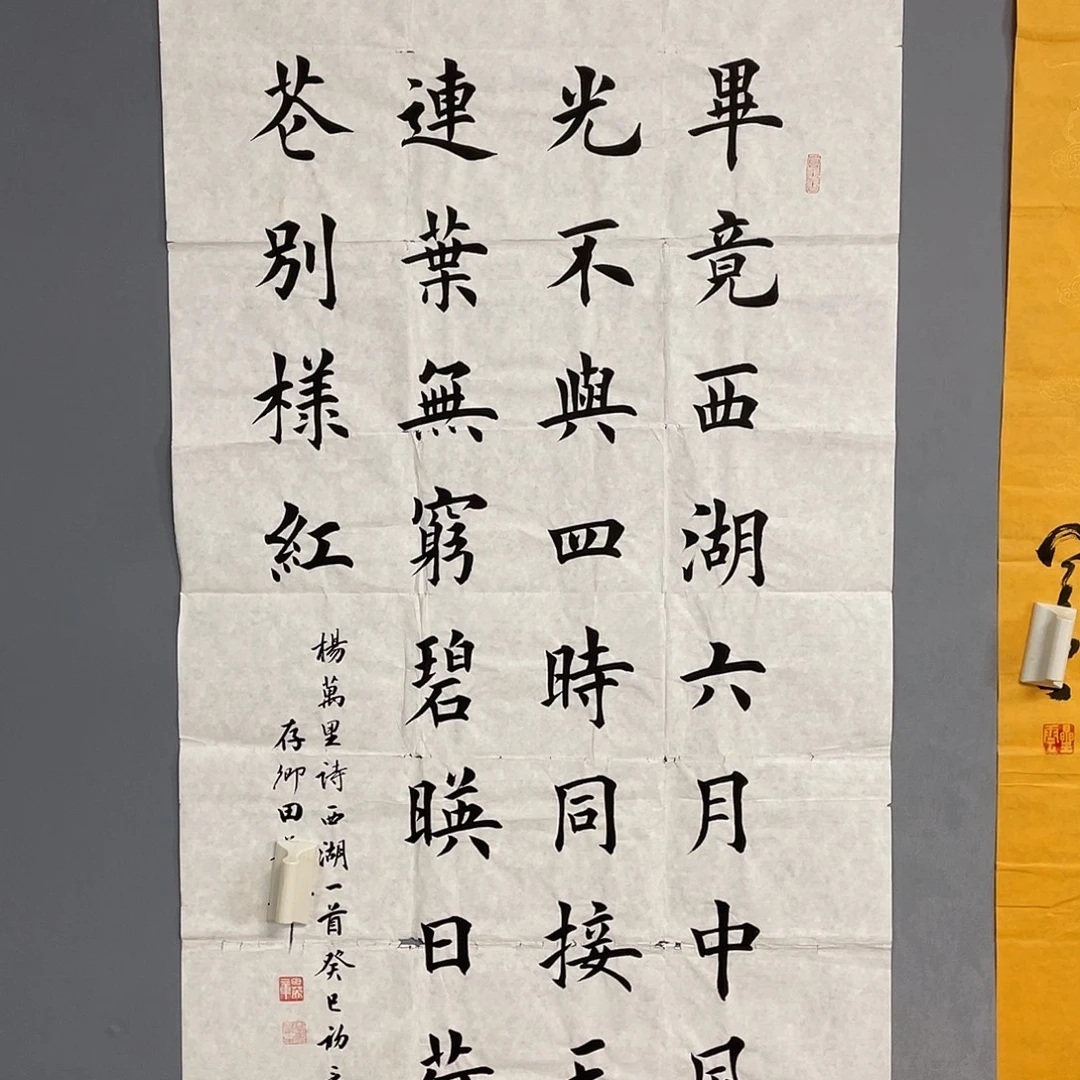 畢竟西湖六月中風
光不與四時同接天
連葉無窮碧暎日荷
芲別樣紅
楊萬里詩西湖一首癸巳初
存卿田